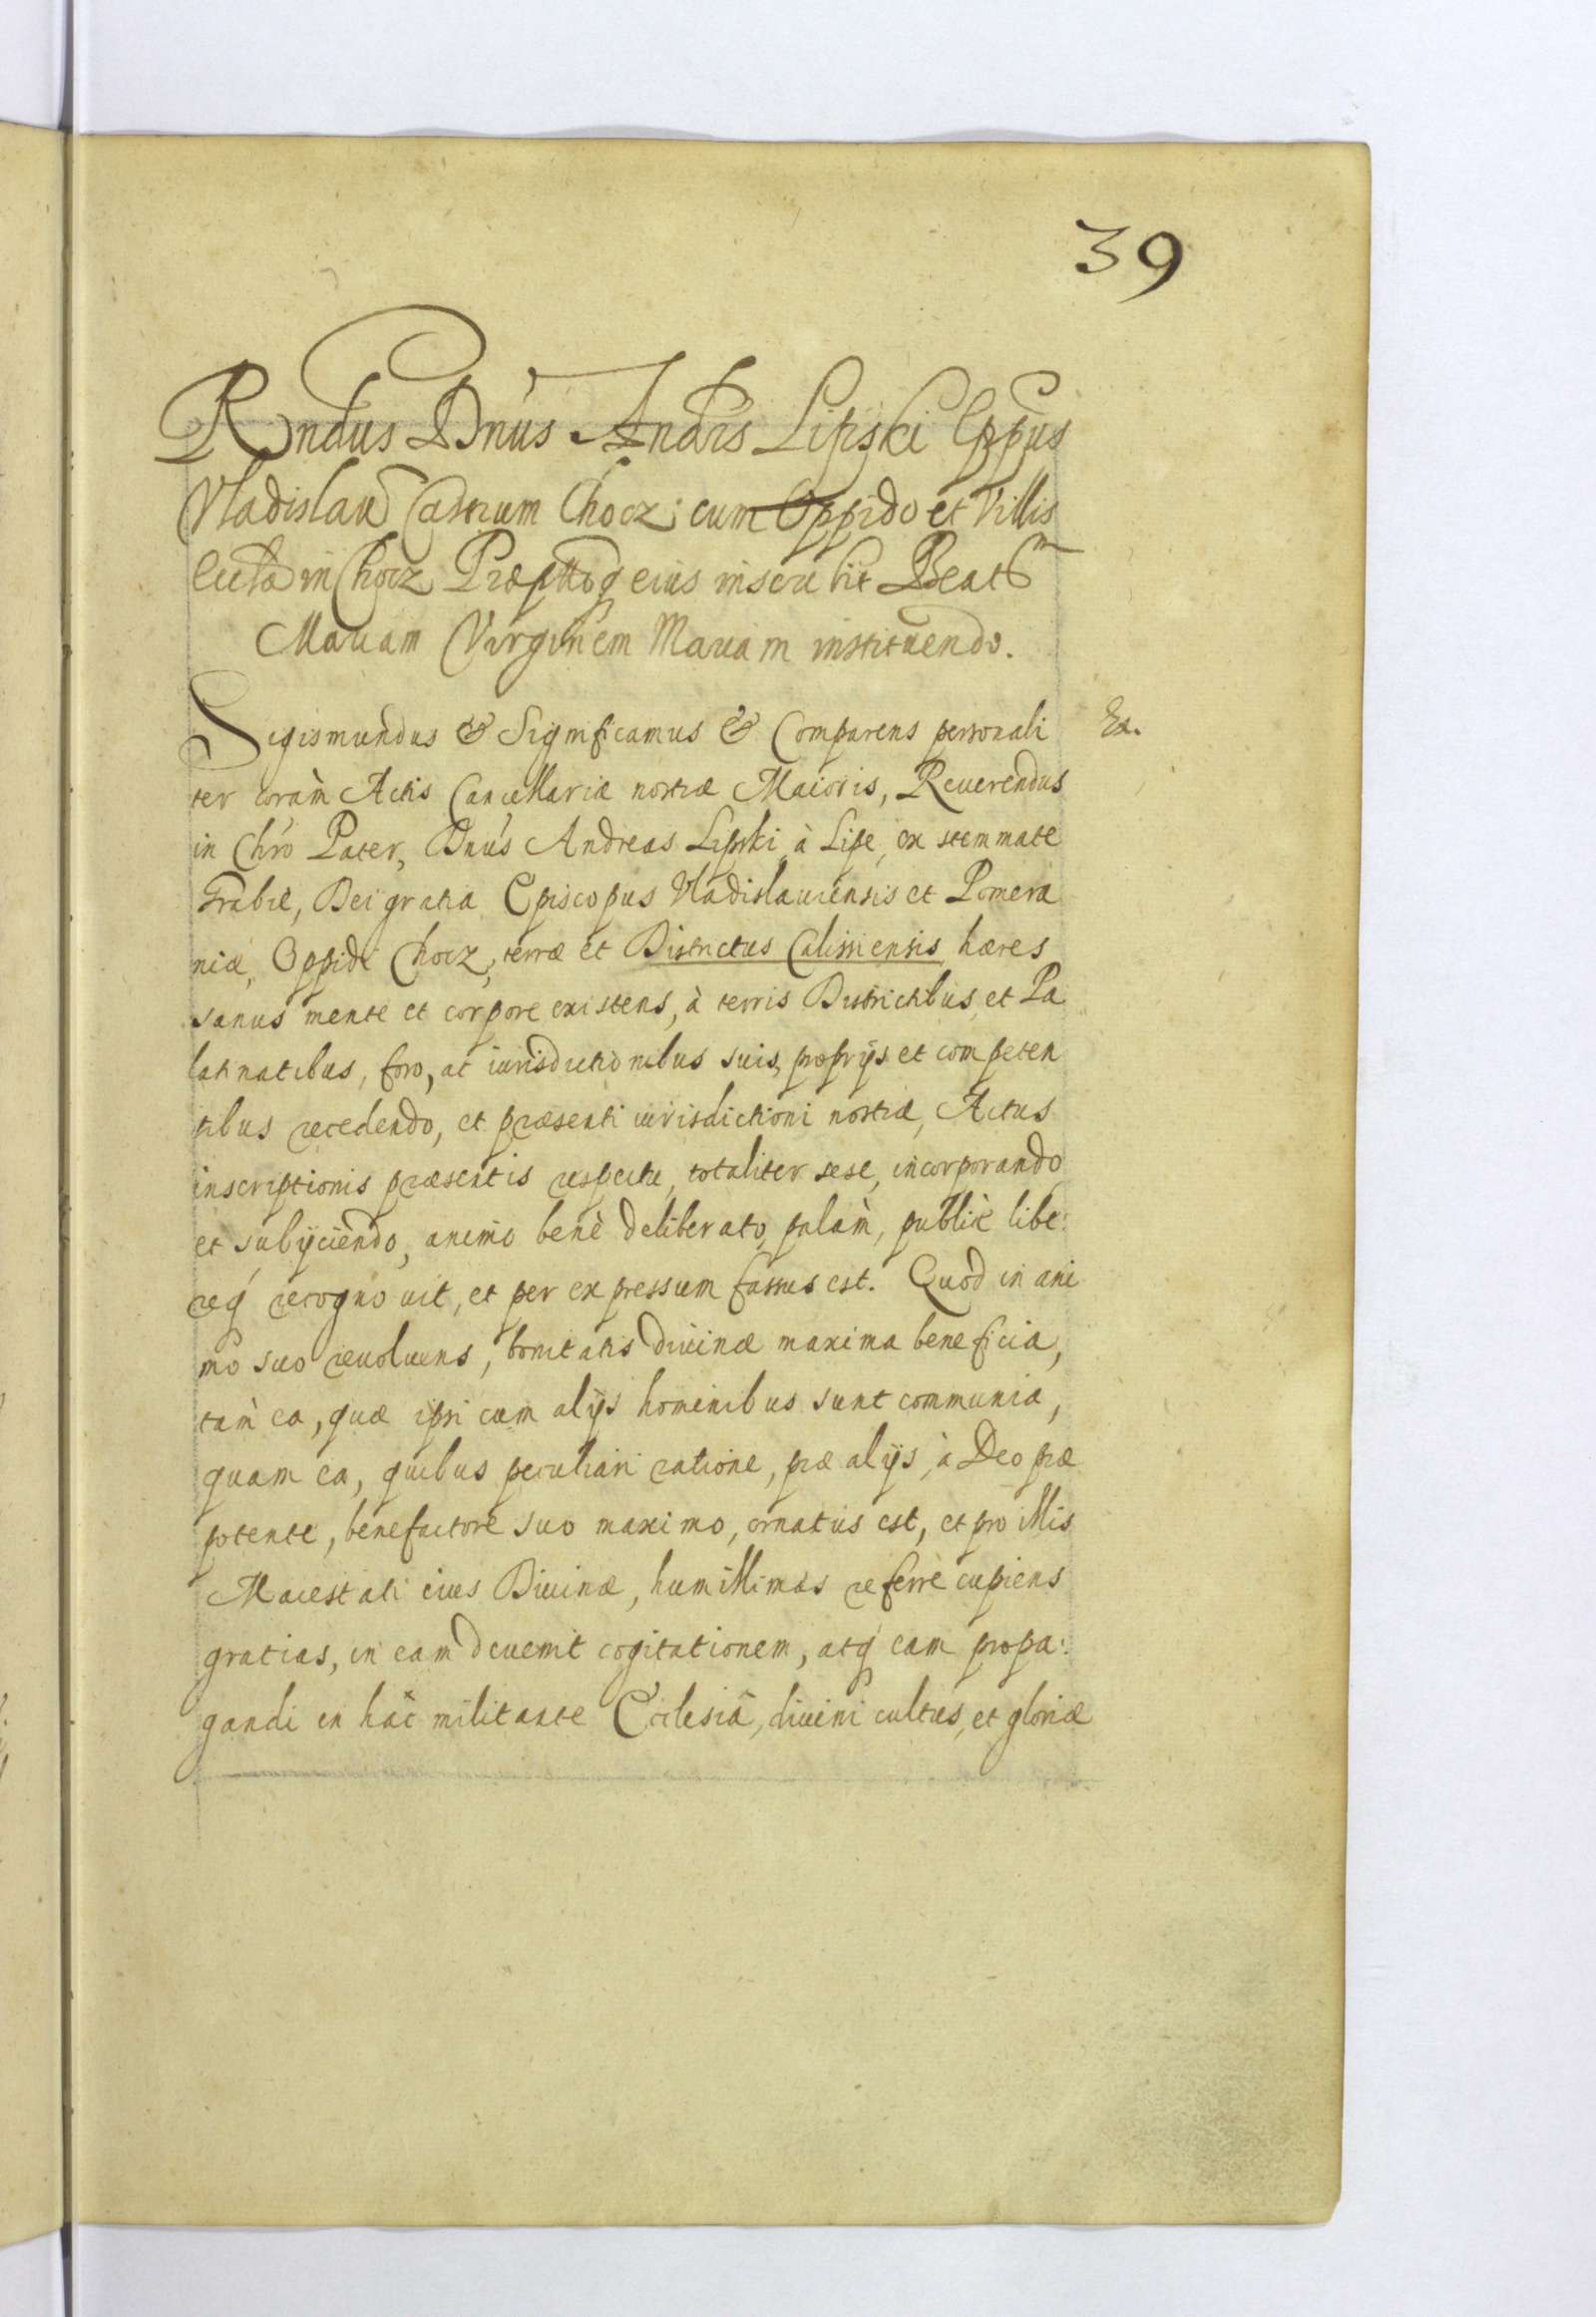 39
Rndus Dnus Andrs Lipski Eppus
Vladislau Castrum Chocz cum Oppido et Villis
in Chocz eius inscribit Beatm
Mariam Virginem Mariam instituendo.
Sigismundus & Significamus & Comparens personali
Ex.
ter coràm Actis Cancellariæ nostræ Maioris, Reuerendus
in Chro Pater, Dnus Andreas Lipski à Lipe, ex stemmate
Grabie, Dei gratia Episcopus Vladislauiensis et Pomera
niæ, Oppidi Chocz, terræ et Districtus Calissiensis hæres
sanus mente et corpore existens, à terris Districtibus et Pa
latinatibus, foro, ac iurisdictionibus suis proprijs et competen
tibus recedendo, et præsenti iurisdictioni nostræ, Actus
inscriptionis præsentis respectu, totaliter sese, incorporando
et subijciendo, animo benè deliberato palàm, publicè libe:
req recognouit, et per expressum fassus est. Quod in ani
mo suo reuoluens, bonitatis diuinæ maxima beneficia,
tam ea, quæ ipsi cum alijs hominibus sunt communia,
quam ea, quibus peculiari ratione, præ alijs, à Deo præ
potente, benefactore suo maximo, ornatus est, et pro illis
Maiestati eius Diuinæ, humillimas referre cupiens
gratias, in eam deuenit cogitationem, atq eam propa:
gandi in hâc militante Ecclesiâ, diuini cultus, et gloriæ